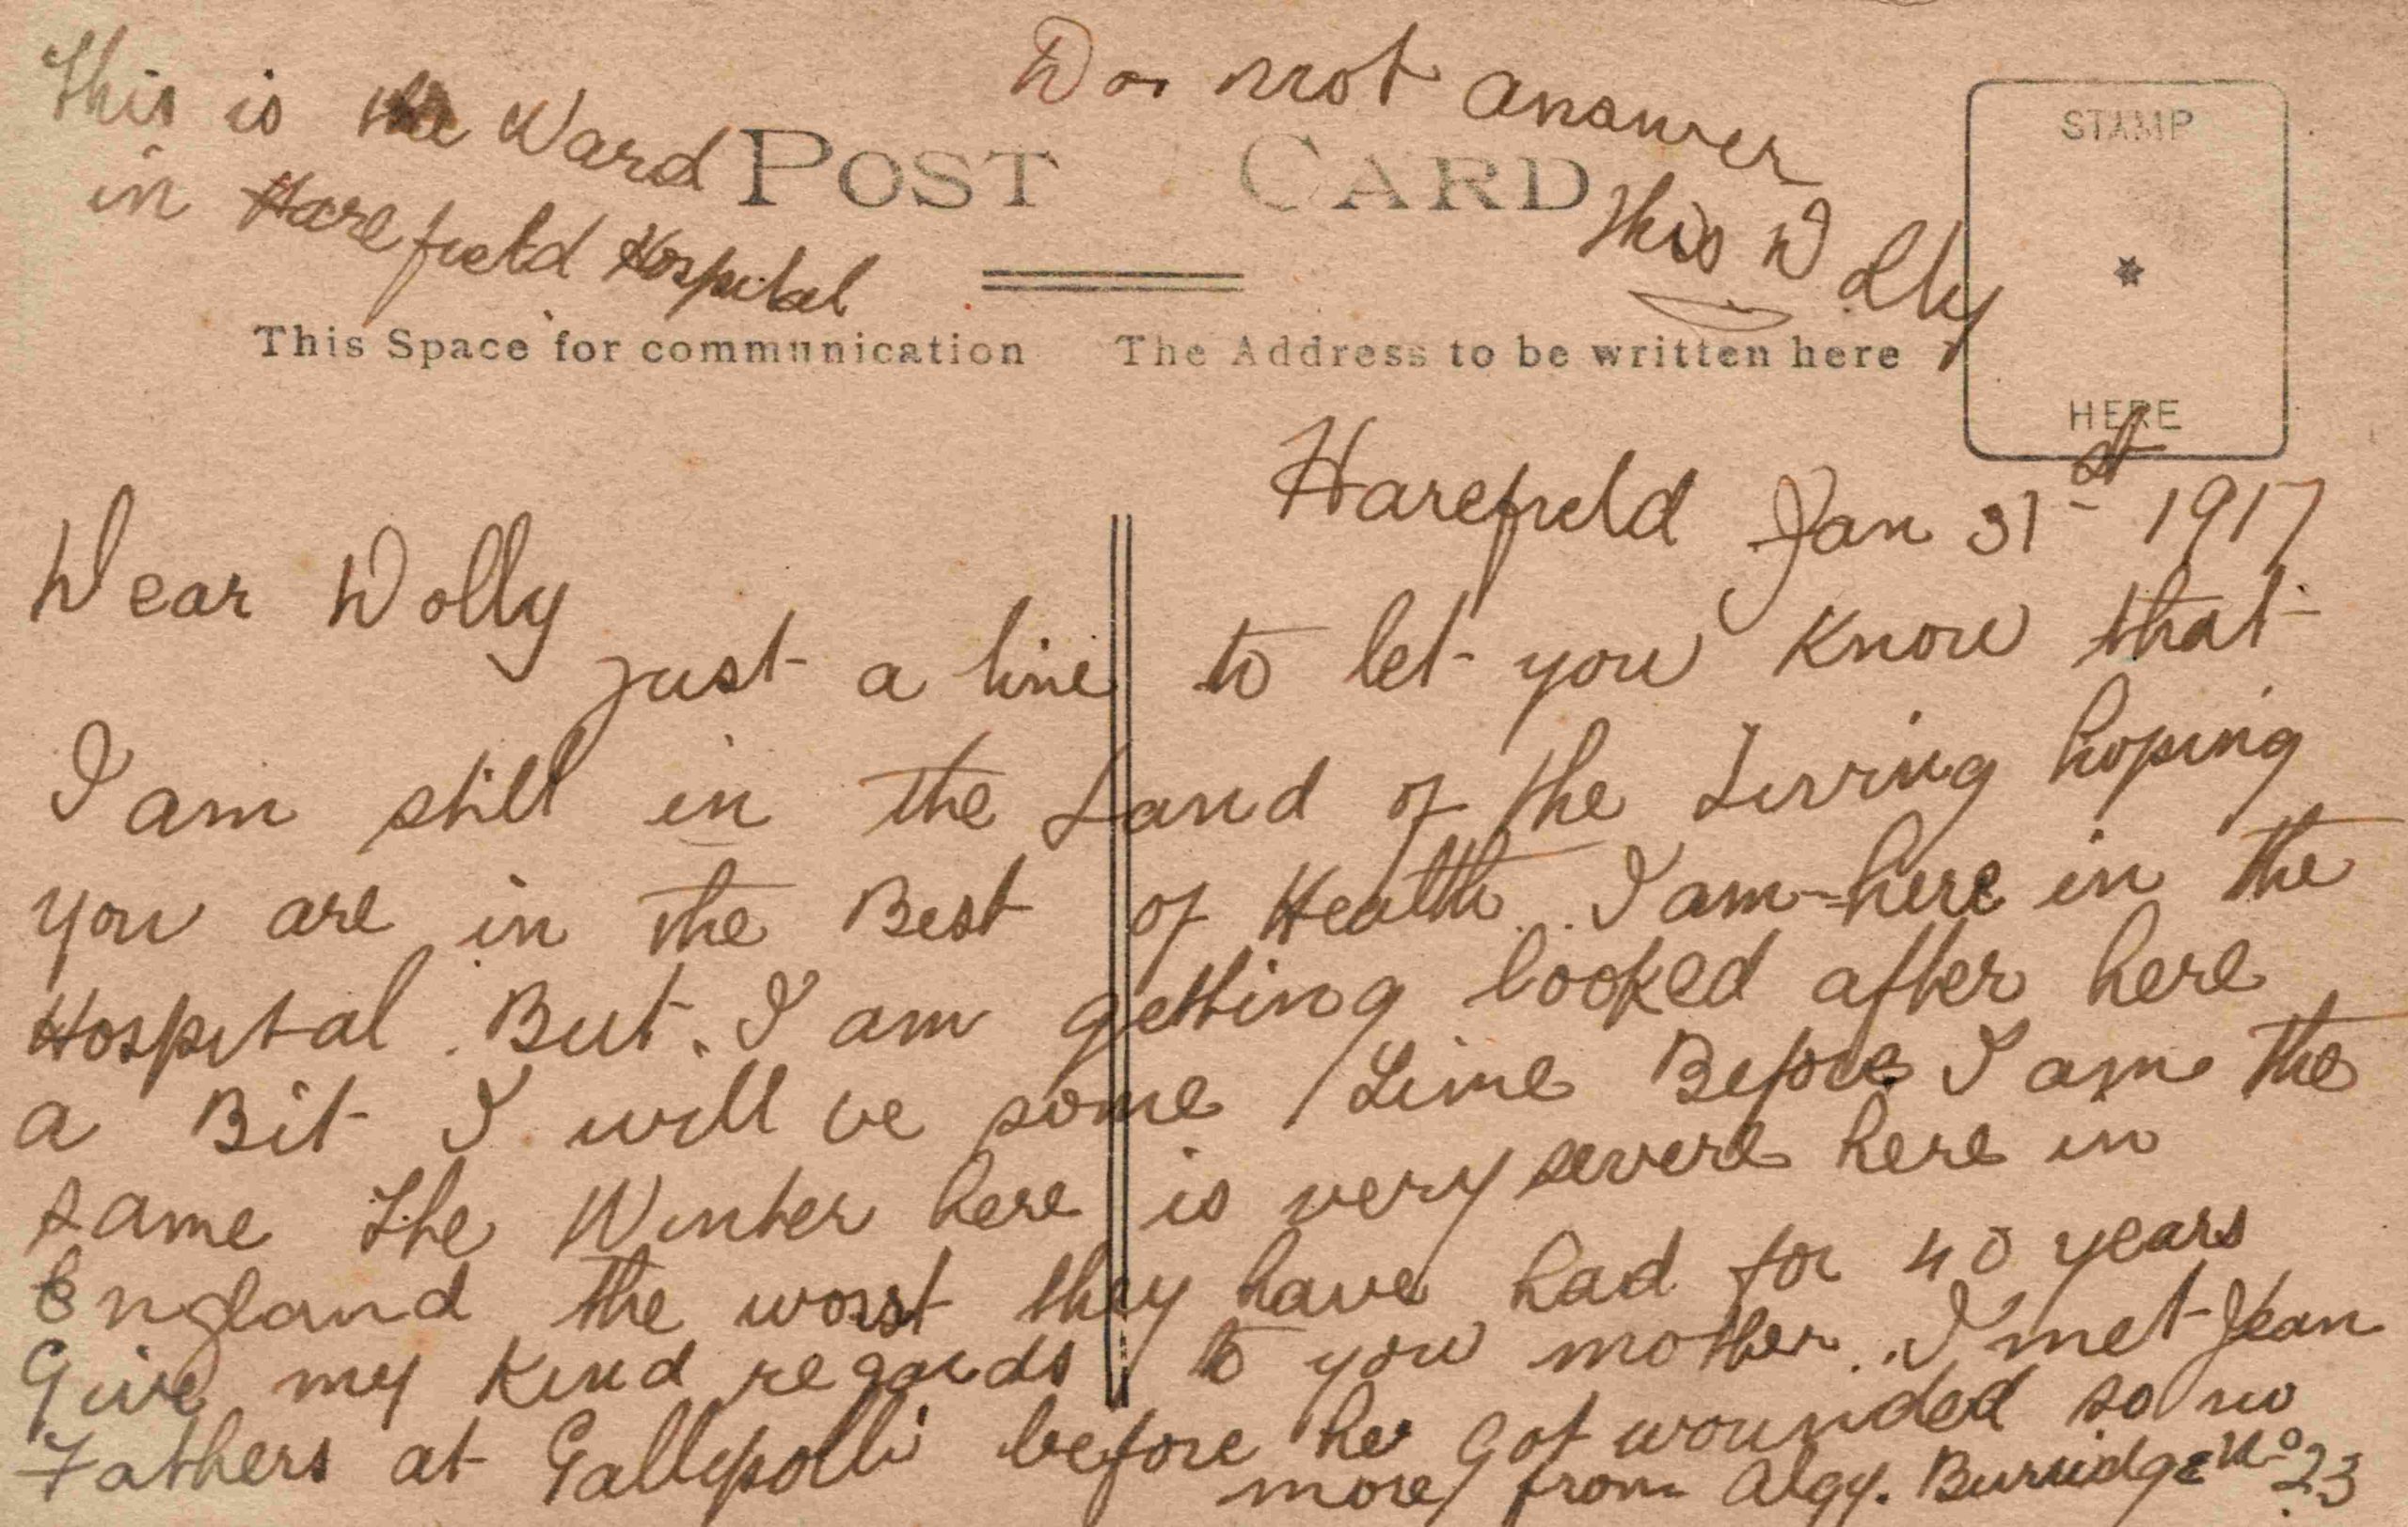 This is the Ward
in Harefield Hospital
Do not answer
this Dolly
POST CARD
STAMP
HERE
This Space for communication
The Address to be written here
Harefield Jan 31st 1917
Dear Dolly
just a line to let you know that
I am still in the Land of the Living hoping
you are in the Best of Health. I am here in the
Hospital. But. I am getting looked after here
a Bit I will be some Time Before I am the
same The Winter here is very severe here in
England the worst they have had for 40 years
Give my Kind regards to your mother. I met Jean
Fathers at Gallipolli before he got wounded so no
more from Algy. Burridge No 23